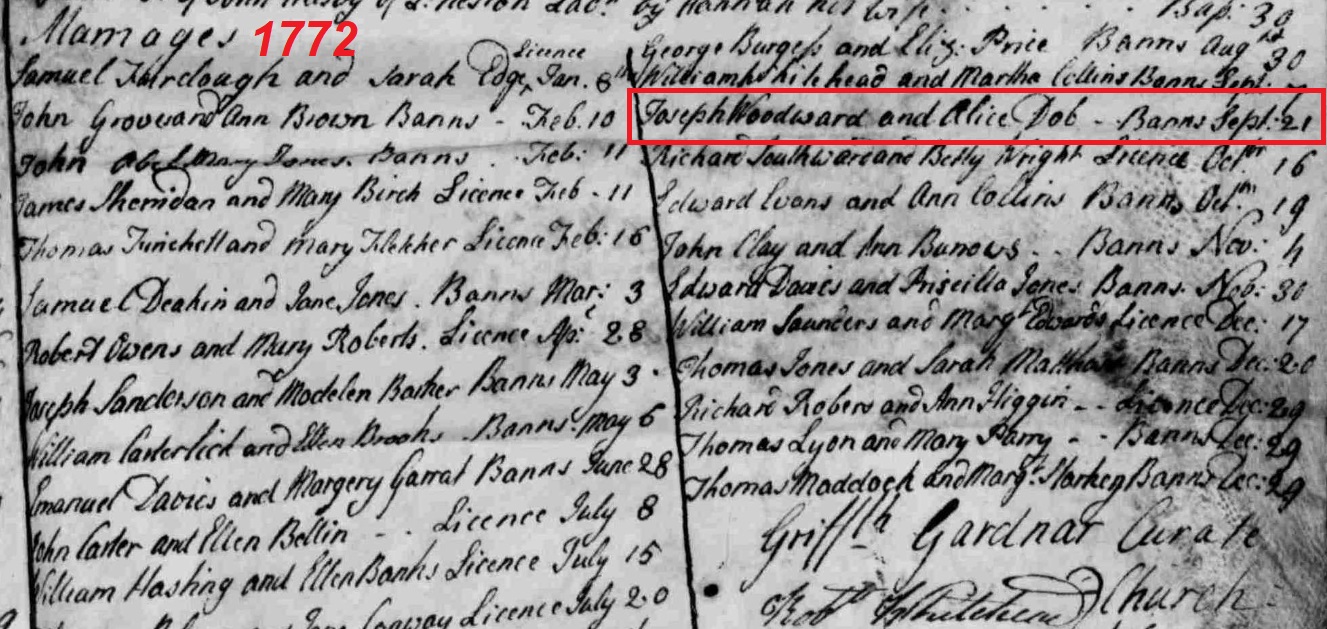 by Hannah his wife Bap: 30
Marriages 1772
Samuel Fairclough and Sarah Edge, Licence Jan. 8th
John Groves and Ann Brown Banns - Feb. 10
John Abel Mary Jones. Banns. Feb: 11
James Sheridan and Mary Birch Licence Feb - 11
Thomas and Mary Licence Feb: 16
Samuel Deakin and Jane Jones. Banns Mar: 3
Robert Owens and Mary Roberts. Licence Ap: 28
Joseph Sanderson and Modelen Barker Banns May 3
William and Ellen Brooks Banns May 6
Emanuel Davies and Margery Garrat Banns June 28
John Carter and Ellen Bellin - - Licence July 8
William Hasting and Ellen Banks Licence July 15
Conway Licence July 20
George Burgess and Eliz: Price Banns Augst 30
William Whitehead and Martha Collins Banns Sept.
Joseph Woodward and Alice Dob - Banns Sept: 21
Richard Southward and Betty Wright Licence Octbr 16
Edward Evans and Ann Collins Banns Oct. 19
John Clay and Ann Burrows - - Banns Nov: 4
Edward Davies and Priscilla Jones Banns. Nob: 30
William Saunders and Margt Edwards Licence Dec: 17
Thomas Jones and Sarah Banns Dec: 20
Richard Robers and Ann Higgin - - Licence Dec: 29
Thomas Lyon and Mary Parry - - Banns Dec: 29
Thomas Maddock and Margt Banns Dec: 29
Griffith Gardnar Curate
Robt Church